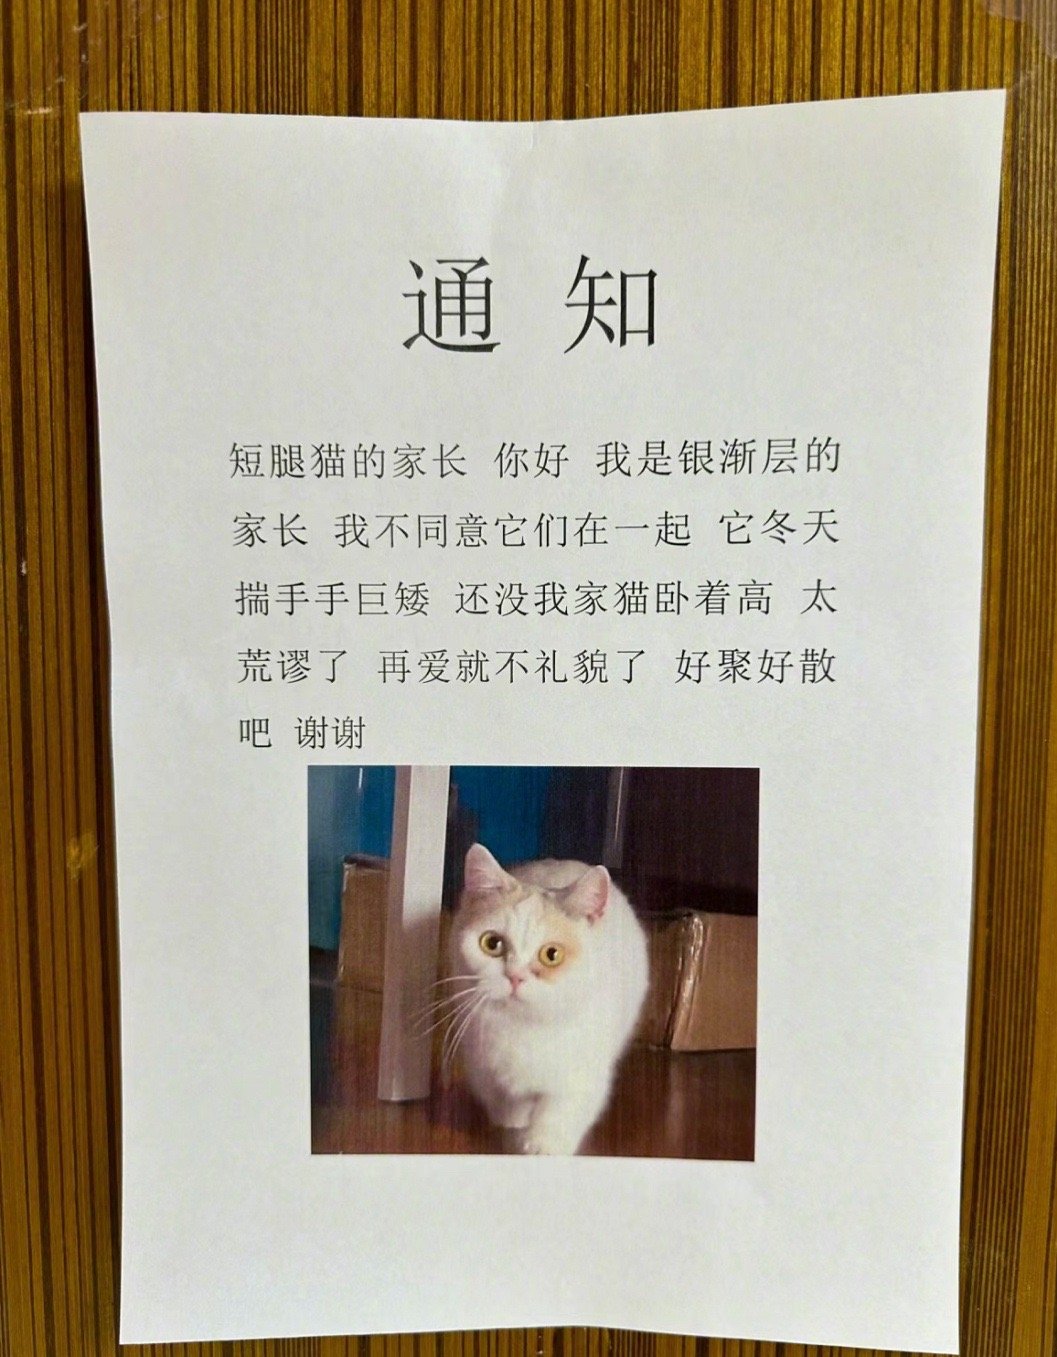 通 知
短腿猫的家长 你好 我是银渐层的
家长 我不同意它们在一起 它冬天
揣手手巨矮 还没我家猫卧着高 太
荒谬了 再爱就不礼貌了 好聚好散
吧 谢谢